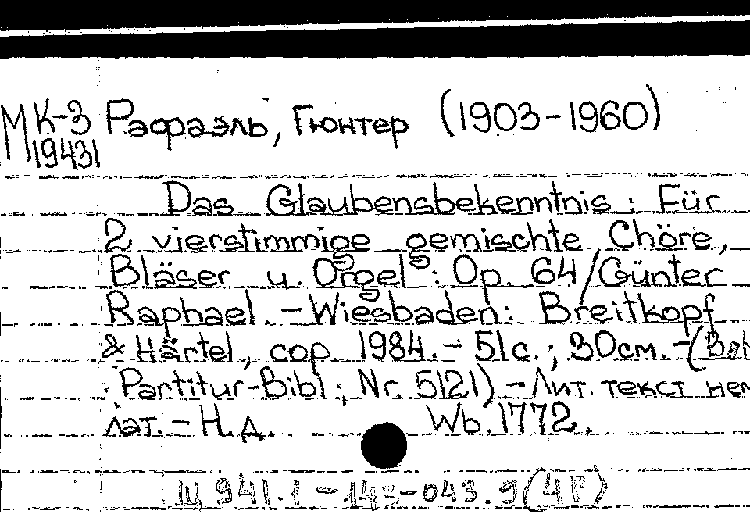 МК-3 Рафаэль, Гюнтер (1903-1960)
19431
Das Glaubensbekenntnis : Für
2 vierstimmige gemischte Chöre,
Bläser u. Orgel : Op. 64 / Günter
Raphael. - Wiesbaden : Breitkopf
& Härtel, cop. 1984. - 51 с. ; 30 см. - (
Partitur-Bibl ; Nr. 5121) - Лит. текст нем.
лат. - Н.д. Wb. 1772.
Ш 941.1-143-043.9(4Г)